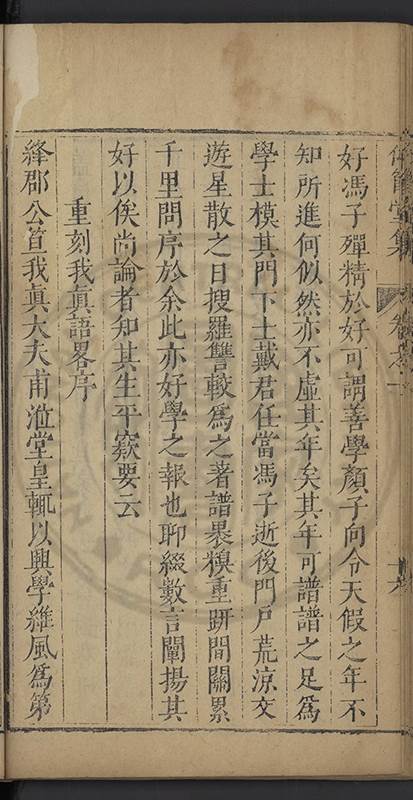 好馮子殫精於好可謂善學顏子向令天假之年不
知所進何似然亦不虛其年矣其年可譜譜之足爲
學士模其門下士戴君任當馮子逝後門戶荒凉交
遊星散之日搜羅讐較爲之著譜褁糗重趼間關累
千里問序於余此亦好學之報也聊綴數言闡揚其
好以俟尚論者知其生平窾要云
重刻我眞語畧序
絳郡公笪我眞大夫甫涖堂皇輒以興學維風爲第